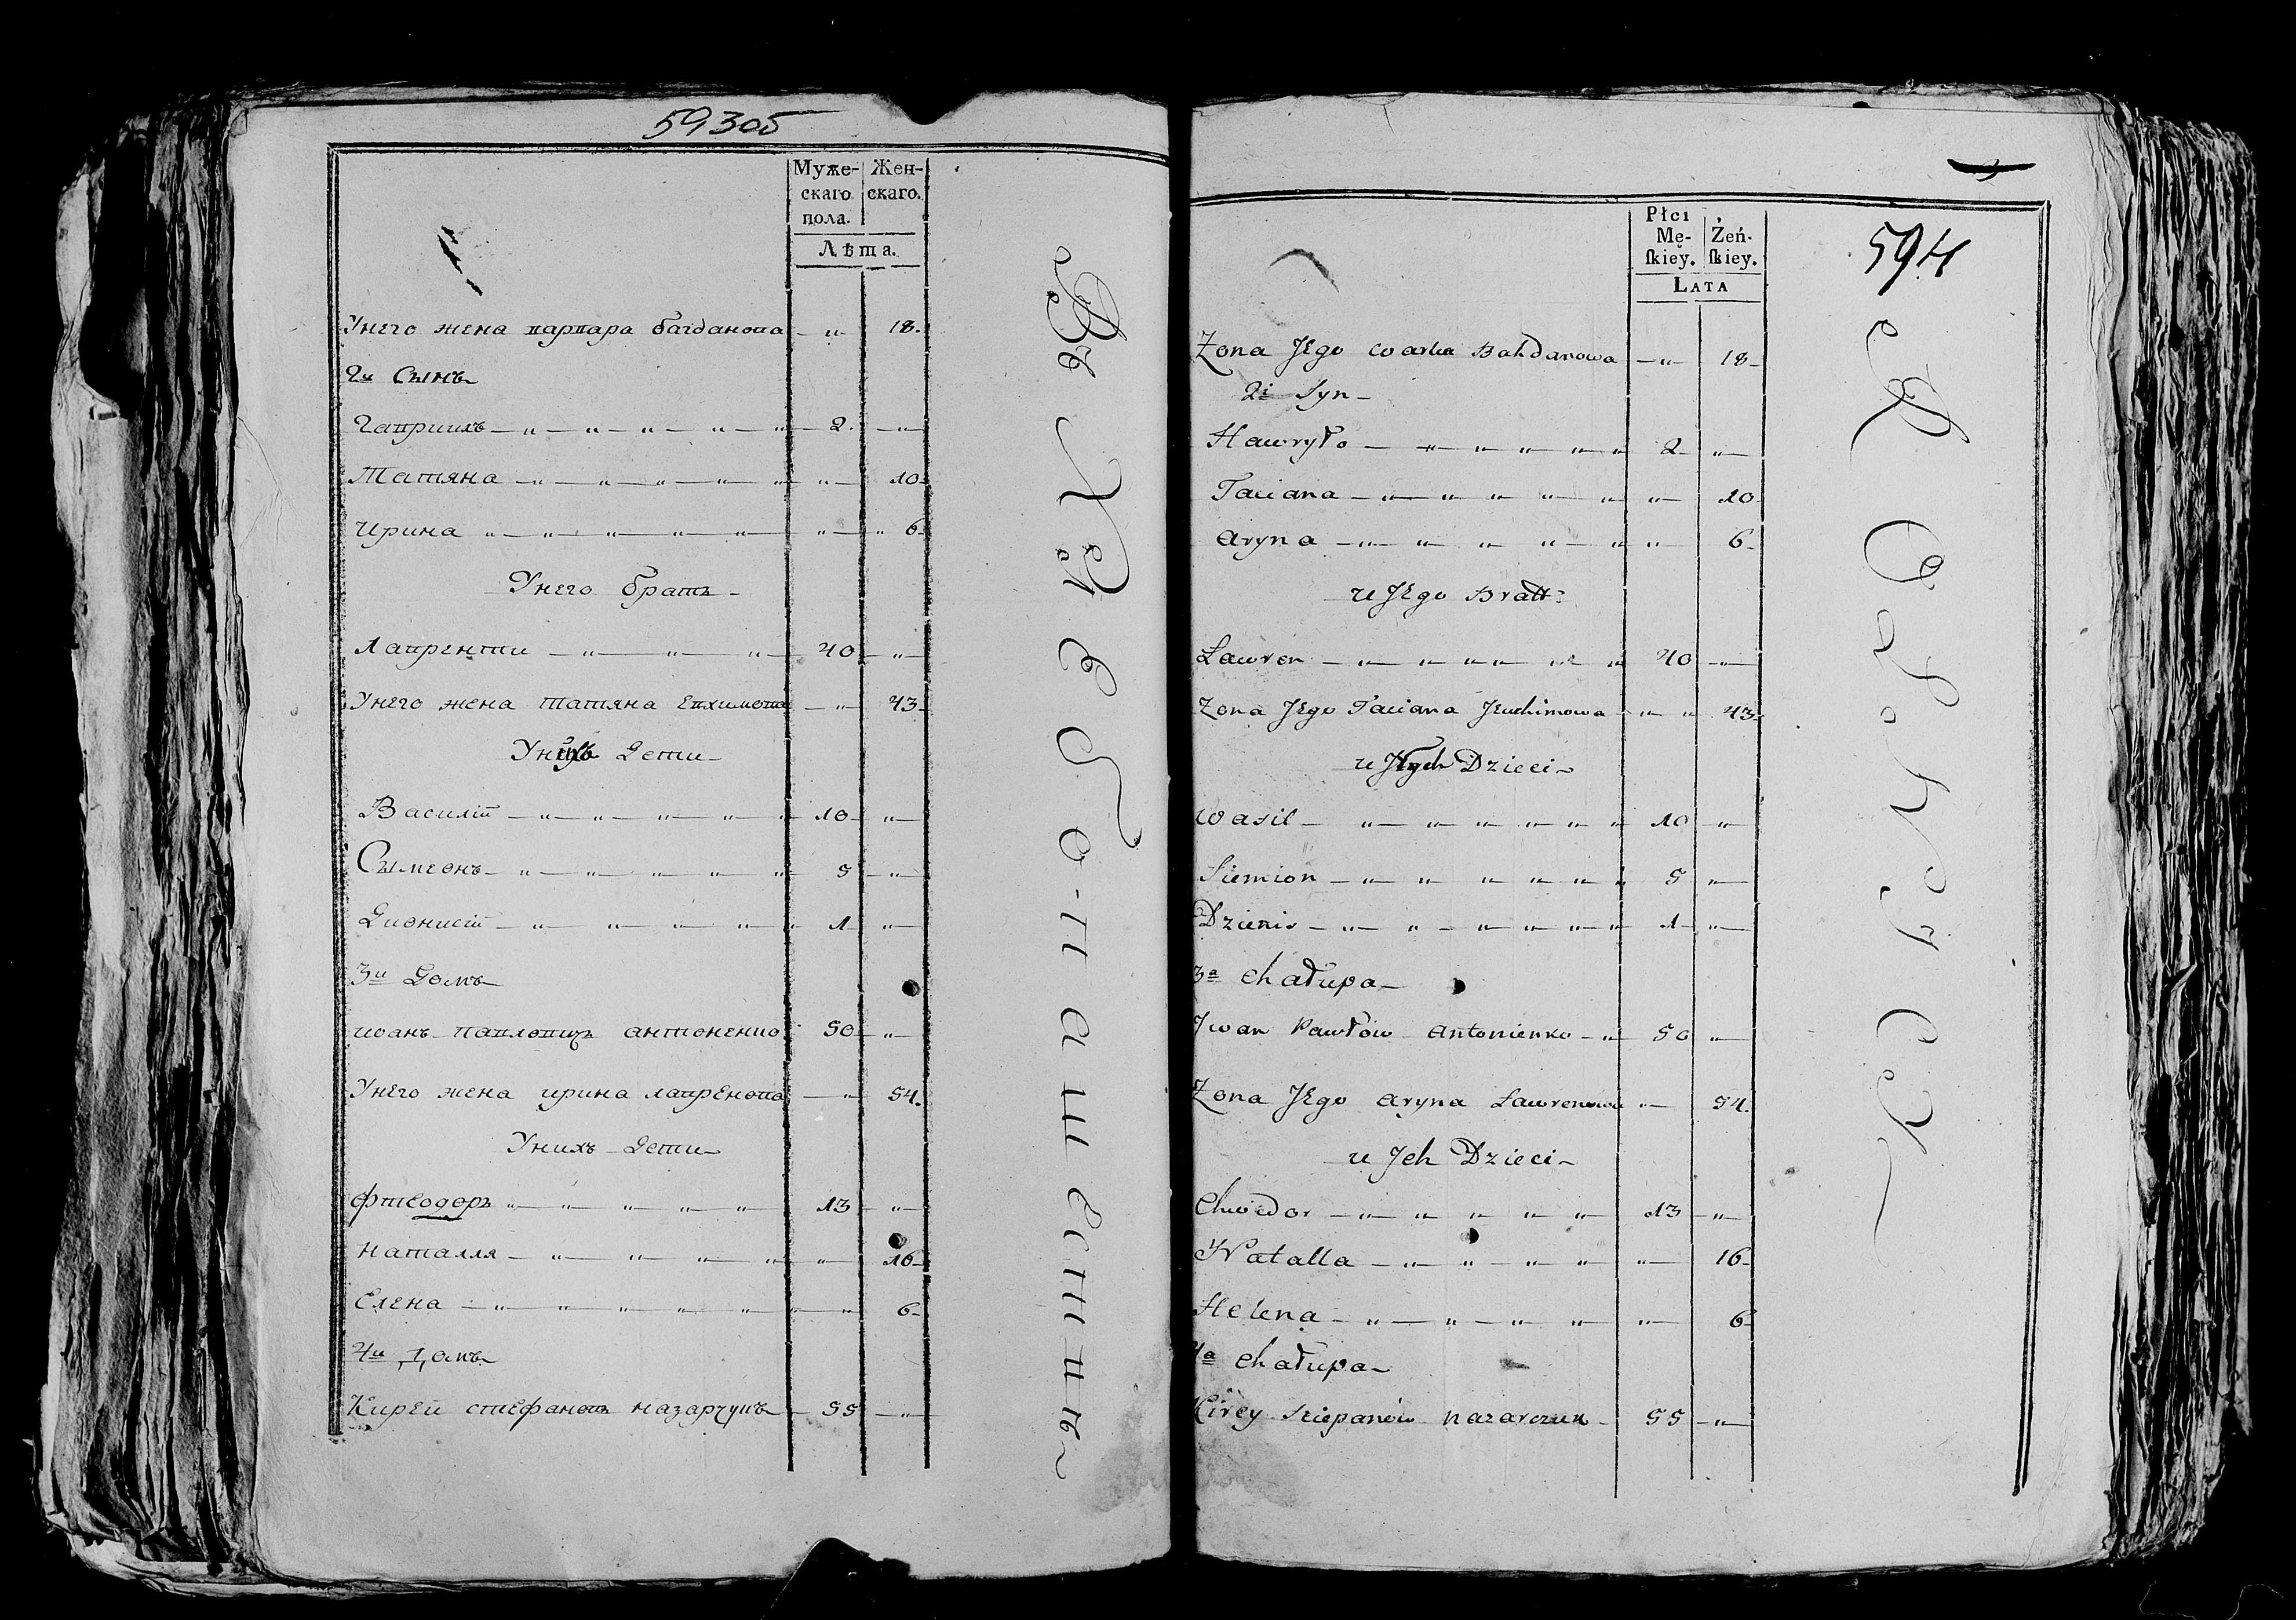 593об
Муже-
скаго
пола.
Жен-
скаго.
Лѣта.
Унего жена варвара багданова — „ 18.
2й Сынъ
Гавриилъ — „ — „ — „ — „ — „ 2. — „
Татяна — „ — „ — „ — „ — „ 10.
Ирина „ — „ — „ — „ — „ — „ „ 6.
Унего братъ
Лавренти — „ — „ — „ 40 — „
Унего жена татяна Евхимова — „ 43.
Унихъ дети
Василій — „ — „ — „ — „ 10 — „
Сымеонъ — „ — „ — „ — „ 5 — „
Дионисій — „ — „ — „ — „ 1 — „
3й Домъ
иванъ павловичъ антоненко 50 — „
Унего жена ирина лавренова — „ 54.
Унихъ дети
фтеодоръ „ „ „ „ „ 13 — „
Наталля — „ — „ — „ — „ 16
Елена — „ — „ — „ — „ 6
4й домъ
Кирей стефановъ назарчукъ — 55 — „
594
Płci
Mę-
ſkiey.
Żeń-
ſkiey.
LATA
Zona Jego warka Bahdanowa — „ 18
2i Syn
Hawryło — „ — „ — „ — „ 2 „
Taciana — „ — „ — „ — „ 10
Aryna — „ — „ — „ — „ 6
u Jego Bratt
Lawren — „ — „ — „ — „ 40 — „
Zona Jego Taciana Jeuchimowa — „ „ 43
u Jych Dzieci
Wasil — „ — „ — „ — „ 10 „
Siemion — „ — „ — „ — „ 5 „
Dzienis — „ — „ — „ — „ 1 „
3a Chałupa
Jwan Pawłow Antonienko — „ 50 „
Zona Jego Aryna Lawrenowa „ 54.
u Jch Dzieci
Chwedor — „ — „ — „ — „ 13 „
Natalla — „ — „ — „ — „ 16
Helena — „ — „ — „ — „ 6
4a Chałupa
Kirey Sciepanow Nazarczuk 55 „